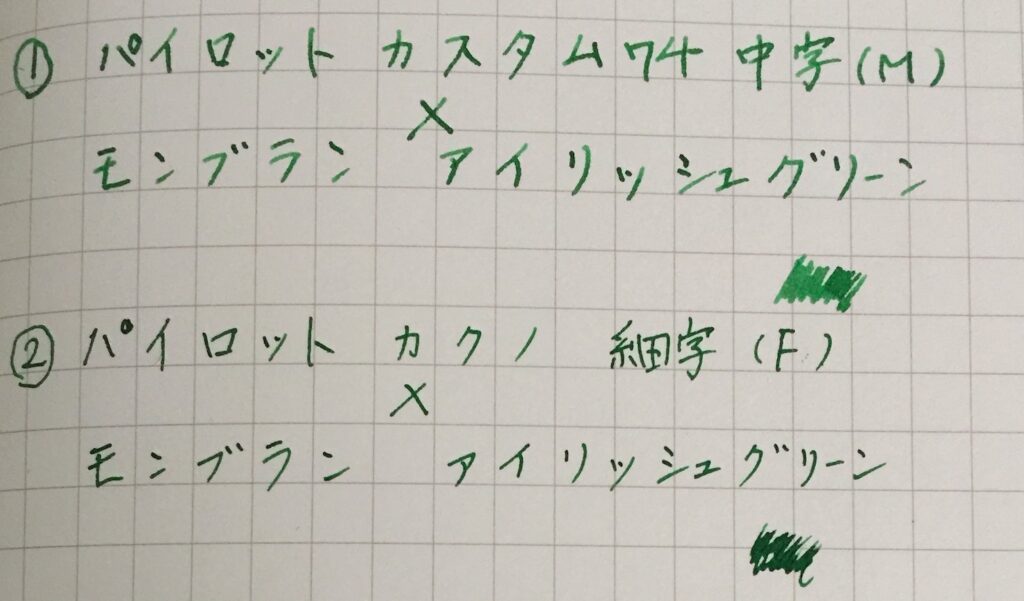 ① パイロット カスタム74 中字(M)
×
モンブラン アイリッシュグリーン
② パイロット カクノ 細字(F)
×
モンブラン アイリッシュグリーン